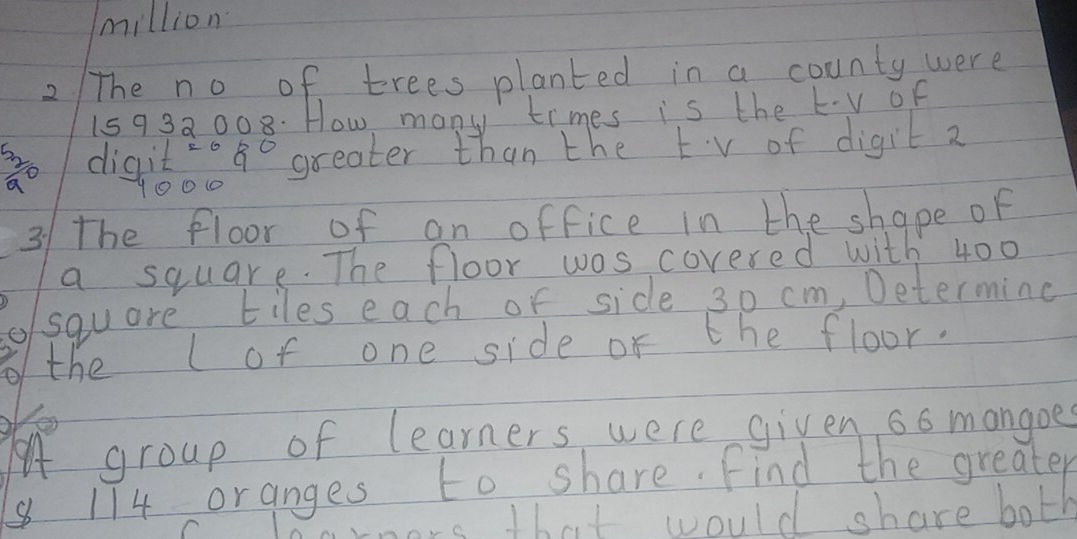 million.
2 The no of trees planted in a county were
15932008. How many times is the t.v of
digit 9 greater than the t.v of digit 2
4000
3 The floor of an office in the shape of
a square. The floor was covered with 400
square tiles each of side 30 cm, Determine
the l of one side of the floor.
A group of learners were given 66 mangoes
& 114 oranges to share. Find the greater
learners that would share both